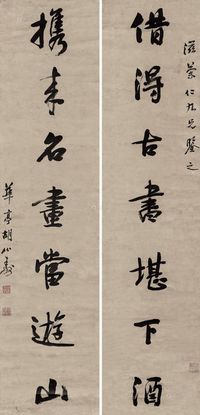 仁兄鑒之
借得古書堪下酒
携来名畫當遊山
華亭胡公壽